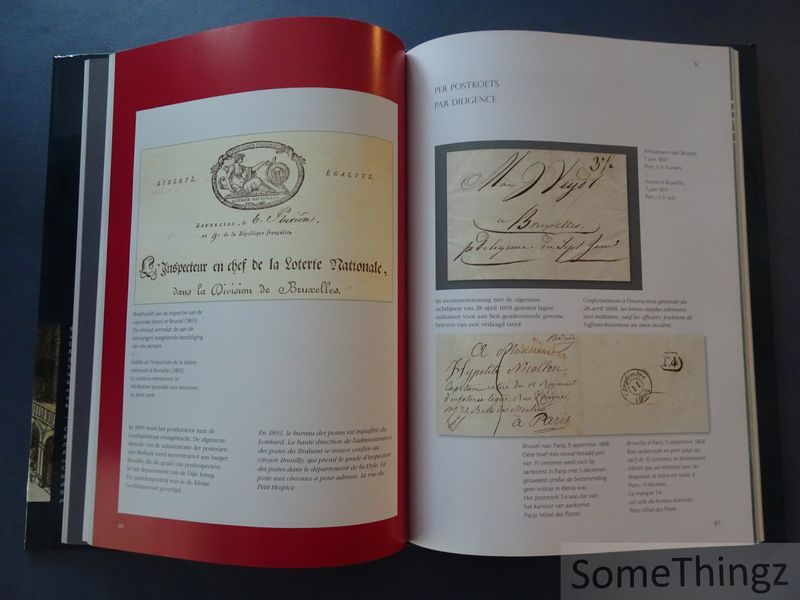 LIBERTÉ.
ÉGALITÉ.
BRUXELLES, le 6. Pluviôse
an 9.e de la République française.
L'Inspecteur en chef de la Loterie Nationale,
dans la Division de Bruxelles.
Briefhoofd van de inspectie van de
nationale loterij te Brussel (1801).
De inhoud vermeldt de aan de
ontvangers toegekende bezoldiging
van zes percent.
Entête de l'inspection de la loterie
nationale à Bruxelles (1801)
Le contenu mentionne la
rétribution accordée aux receveurs :
six pour cent.
In 1803 werd het postkantoor naar de
Lombardstraat overgebracht. De algemene
directie van de administratie der posterijen
van Brabant werd toevertrouwd aan burger
Breuilly die de graad van postinspecteur
in het departement van de Dijle kreeg.
De postkoetsposterij was in de Kleine
Godshuisstraat gevestigd.
En 1803, le bureau des postes est transféré du
Lombard. La haute direction de l'administration
des postes du Brabant se trouve confiée au
citoyen Breuilly, qui prend le grade d'inspecteur
des postes dans le département de la Dyle. La
poste aux chevaux a pour adresse, la rue du
Petit Hospice.
86
V.
PER POSTKOETS
PAR DILIGENCE
3 1/2
à Bruxelles
Antwerpen naar Brussel,
7 juni 1801.
Port : 3 ½ stuivers
–
Anvers à Bruxelles,
7 juin 1801.
Port : 3 ½ sols
In overeenstemming met de algemene
richtlijnen van 28 april 1808 genoten lagere
militairen voor aan hen geadresseerde gewone
brieven van een verlaagd tarief.
Conformément à l'instruction générale du
28 avril 1808, les lettres simples adressées
aux militaires, sauf les officiers, jouissent de
l'affranchissement au taux modéré.
A Monsieur
Hypolite Nicollon,
Capitaine
à Paris
T.4
Brussel naar Parijs, 9 september 1808.
Deze brief met vooraf betaald port
van 15 centimes werd toch bij
aankomst in Parijs met 5 decimen
getaxeerd omdat de bestemmeling
geen militair in dienst was.
Het postmerk T4 was dat van
het kantoor van aankomst
Parijs 'Hôtel des Postes'.
Bruxelles à Paris, 9 septembre 1808.
Bien qu'envoyée en port payé au
tarif de 15 centimes, le destinataire
n'étant pas un militaire sous les
drapeaux, la lettre est taxée à
Paris : 5 décimes.
La marque T4
est celle du bureau d'arrivée
Paris Hôtel des Poste.
87
SomeThingz